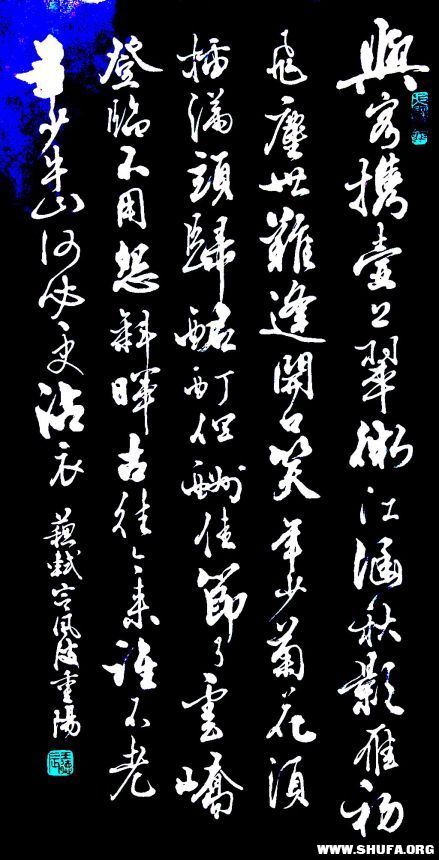 與客攜壺上翠微江涵秋影雁初
飛塵世難逢開口笑年少菊花須
插滿頭歸酩酊但酬佳節了雲嶠
登臨不用怨斜暉古往今來誰不老
年少牛山何必更沾衣 蘇軾定風波重陽
WWW.SHUFA.ORG